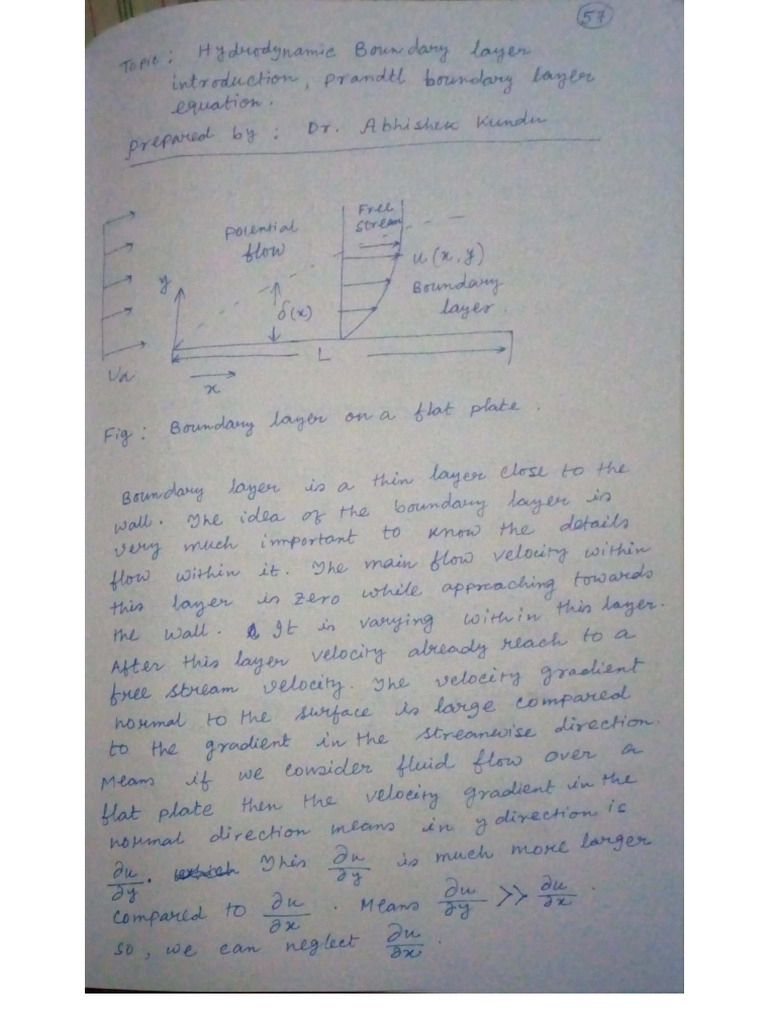 57
Topic: Hydrodynamic Boundary layer
introduction, prandtl boundary layer
equation.
prepared by: Dr. Abhishek Kundu
Free
stream
potential
flow
u(x, y)
y
δ(x)
Boundary
layer.
L
x
Fig: Boundary layer on a flat plate.
Boundary layer is a thin layer close to the
wall. The idea of the boundary layer is
very much important to know the details
flow within it. The main flow velocity within
this layer is zero while approaching towards
the wall. It is varying within this layer.
After this layer velocity already reach to a
free stream velocity. The velocity gradient
normal to the surface is large compared
to the gradient in the streamwise direction.
Means if we consider fluid flow over a
flat plate then the velocity gradient in the
normal direction means in y direction is
∂u/∂y. This ∂u/∂y is much more larger
compared to ∂u/∂x. Means ∂u/∂y >> ∂u/∂x.
so, we can neglect ∂u/∂x.